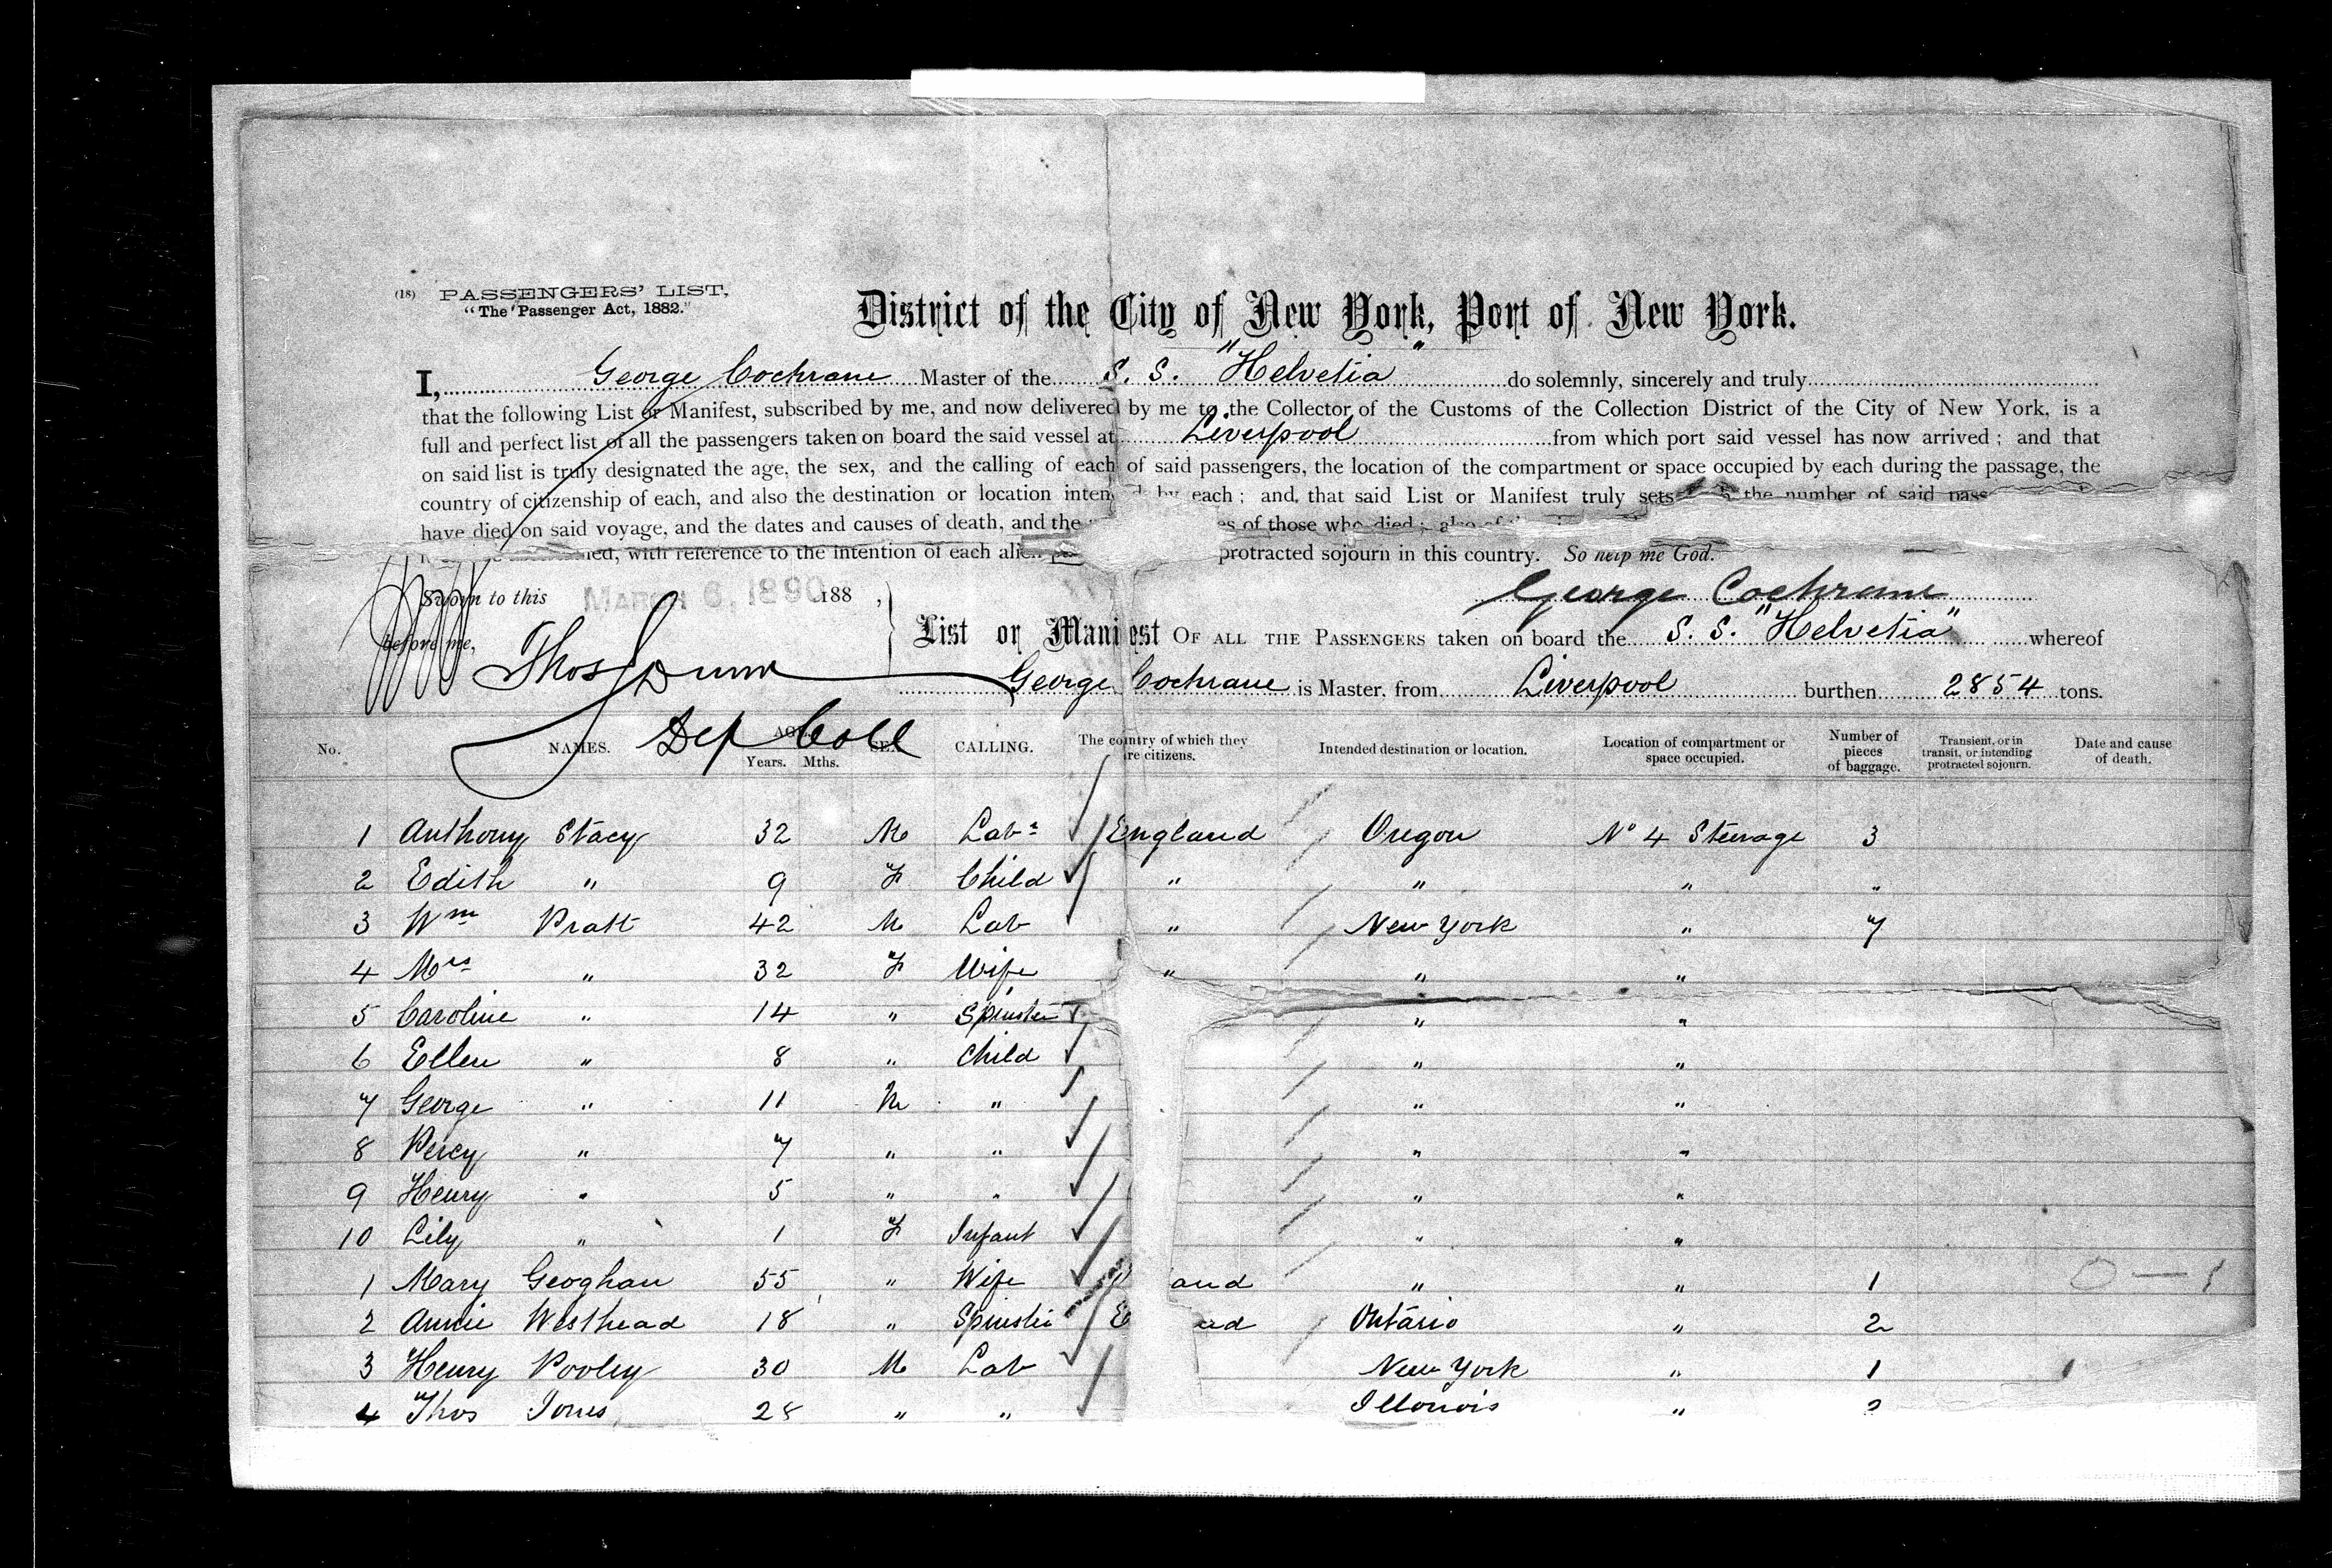 (18) PASSENGERS' LIST,
"The Passenger Act, 1882."
District of the City of New York, Port of New York.
I, George Cochrane Master of the S. S. "Helvetia" do solemnly, sincerely and truly
that the following List or Manifest, subscribed by me, and now delivered by me to the Collector of the Customs of the Collection District of the City of New York, is a
full and perfect list of all the passengers taken on board the said vessel at Liverpool from which port said vessel has now arrived; and that
on said list is truly designated the age, the sex, and the calling of each of said passengers, the location of the compartment or space occupied by each during the passage, the
country of citizenship of each, and also the destination or location inten by each; and, that said List or Manifest truly sets the number of said pass
have died on said voyage, and the dates and causes of death, and the es of those who died; also of
ned, with reference to the intention of each alien protracted sojourn in this country. So help me God.
Sworn to this MARCH 6, 1890 188 , George Cochrane
before me, Thos Dunn List or Manifest OF ALL THE PASSENGERS taken on board the S. S. "Helvetia" whereof
George Cochrane is Master, from Liverpool burthen 2854 tons.
Dep Coll
No. NAMES. AGE. Years. Mths. SEX. CALLING. The country of which they are citizens. Intended destination or location. Location of compartment or space occupied. Number of pieces of baggage. Transient, or in transit, or intending protracted sojourn. Date and cause of death.
1 Anthony Stacy 32 M Labr England Oregon No 4 Steerage 3
2 Edith " 9 F Child " " " "
3 Wm Pratt 42 M Lab " New York " 7
4 Mrs " 32 F Wife " " "
5 Caroline " 14 " Spinster " "
6 Ellen " 8 " Child " "
7 George " 11 M " " "
8 Percy " 7 " " " "
9 Henry " 5 " " " "
10 Lily " 1 F Infant " "
1 Mary Geoghan 55 " Wife and " " 1 0 — 1
2 Annie Westhead 18 " Spinster E nd Ontario " 2
3 Henry Pooley 30 M Lab New York " 1
4 Thos Jones 28 " " Illonois "